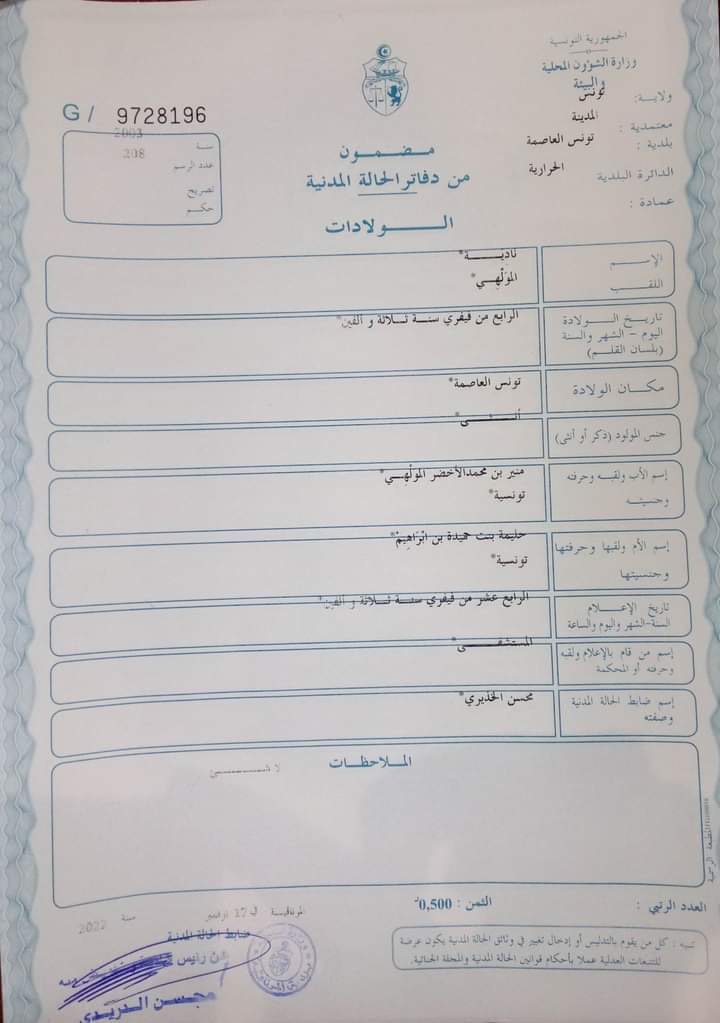 الجمهورية التونسية
وزارة الشؤون المحلية
والبيئة
ولاية: تونس
معتمدية : المدينة
بلدية : تونس العاصمة
الدائرة البلدية الحرارية
عمادة :
G / 9728196
سنة 2003
عدد الرسم 208
تصريح
حكم
مضمون
من دفاتر الحالة المدنية
الولادات
الإسم ناديـــة*
اللقب المَوْلْهِي*
تاريخ الولادة
اليوم - الشهر والسنة
(بلسان القلم)
الرابع من فيفري سنة ثلاثة و ألفين*
مكان الولادة تونس العاصمة*
جنس المولود (ذكر أو أنثى) أنثى*
إسم الأب ولقبه وحرفته
وجنسيته
منير بن محمدالأخضر المَوْلْهي*
تونسية*
إسم الأم ولقبها وحرفتها
وجنسيتها
حليمة بنت حميدة بن ابْرَاهِيمْ*
تونسية*
تاريخ الإعلام
السنة-الشهر واليوم والساعة
الرابع عشر من فيفري سنة ثلاثة و ألفين*
إسم من قام بالإعلام ولقبه
وحرفته أو المحكمة
المستشفى*
إسم ضابط الحالة المدنية
وصفته
محسن الخذيري*
الملاحظات
المطبعة الرسمية
العدد الرتبي :
الثمن : 0,500د
في 17 نوفمبر سنة 2022
ضابط الحالة المدنية
عن رئيس
محسن الدريدي
تنبيه : كل من يقوم بالتدليس أو إدخال تغيير في وثائق الحالة المدنية يكون عرضة
للتتبعات العدلية عملا بأحكام قوانين الحالة المدنية والمجلة الجنائية.